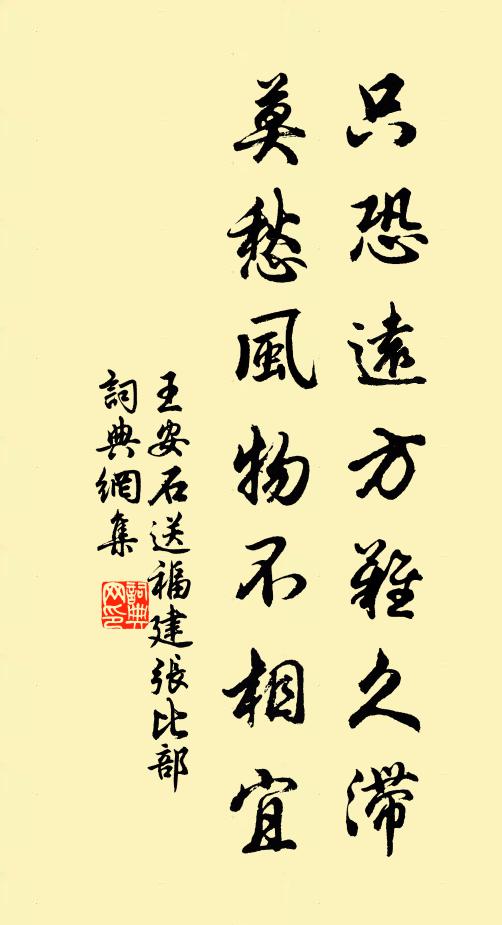 只恐遠方難久滯
莫愁風物不相宜
王安石送福建張比部
詞典網集
詞典網印